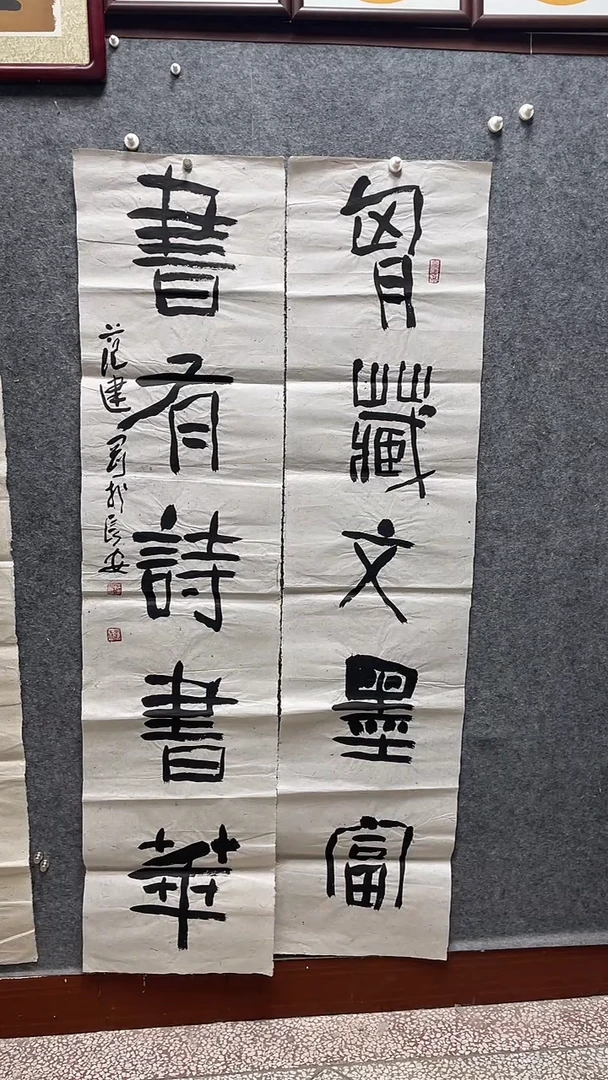 胷藏文墨富
書有詩書華
范建於長安